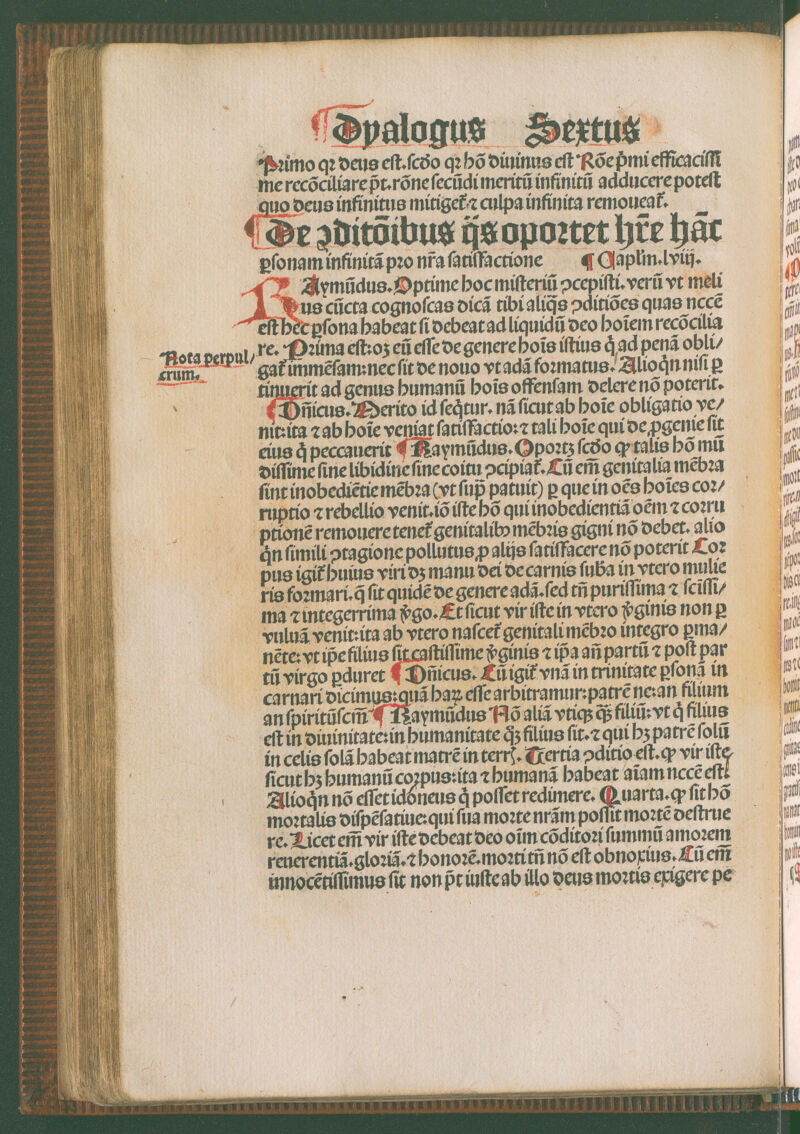 ¶ Dyalogus Sextus
Primo qꝛ deus est. scd̄o qꝛ hō diuinus est Rōe p̄mi efficacissi
me recōciliare p̄t. rōne secūdi meritū infinitū adducere potest
quo deus infinitus mitiget̄. ⁊ culpa infinita remoueat̄.
¶ De ꝯditōibus q̄s oportet hr̄e hāc
ꝑsonam infinitā pro nr̄a satisfactione ¶ Caplm̄. lviij.
RAymūdus. Optime hoc misteriū ꝯcepisti. verū vt meli
us cūcta cognoscas dicā tibi aliq̄s ꝯditiōes quas nccē
est hec ꝑsona habeat si debeat ad liquidū deo hoīem recōcilia
re. Prima est: oꝫ eū esse de genere hoīs istius q̇ ad penā obli/
Nota perpul/
crum.
gat̄ immēsam: nec sit de nouo vt adā formatus. Alioq̇n nisi ꝑ
tinuerit ad genus humanū hoīs offensam delere nō poterit.
¶ Dn̄icus. Merito id seq̄tur. nā sicut ab hoīe obligatio ve/
nit: ita ⁊ ab hoīe veniat satisfactio: ⁊ tali hoīe qui de ꝓgenie sit
eius q̇ peccauerit ¶ Raymūdus. Oportꝫ scd̄o ꝙ talis hō mū
dissime sine libidine sine coitu ꝯcipiat̄. Cū em̄ genitalia mēbra
sint inobediētie mēbra (vt sup̄ patuit) ꝑ que in oēs hoīes cor/
ruptio ⁊ rebellio venit. iō iste hō qui inobedientiā oēm ⁊ corru
ptionē remouere tenet̄ genitalibꝰ mēbris gigni nō debet. alio
q̇n simili ꝯtagione pollutus ꝓ alijs satisfacere nō poterit Cor
pus igit̄ huius viri dꝫ manu dei de carnis suba in vtero mulie
ris formari. q̄ sit quidē de genere adā. sed tn̄ purissima ⁊ scīssi/
ma ⁊ integerrima v̄go. Et sicut vir iste in vtero v̄ginis non ꝑ
vuluā venit: ita ab vtero nascet̄ genitali mēbro integro ꝑma/
nēte: vt ip̄e filius sit castissime v̄ginis ⁊ ip̄a an̄ partū ⁊ post par
tū virgo ꝑduret ¶ Dn̄icus. Cū igit̄ vnā in trinitate ꝑsonā in
carnari dicimus: quā haꝝ esse arbitramur: patrē ne: an filium
an spiritūscm̄ ¶ Raymūdus Nō aliā vtiqꝫ q̄ꝫ filiū: vt q̇ filius
est in diuinitate: in humanitate q̇ꝫ filius sit. ⁊ qui hꝫ patrē solū
in celis solā habeat matrē in terrꝭ. Tertia ꝯditio est. ꝙ vir iste
sicut hꝫ humanū corpus: ita ⁊ humanā habeat aīam nccē est.
Alioq̇n nō esset idoneus q̇ posset redimere. Quarta. ꝙ sit hō
mortalis dispēsatiue: qui sua morte nrām possit mortē destrue
re. Licet em̄ vir iste debeat deo oīm cōditori summū amorem
reuerentiā. gloriā. ⁊ honorē. morti tn̄ nō est obnoxius. Cū em̄
innocētissimus sit non p̄t iuste ab illo deus mortis exigere pe